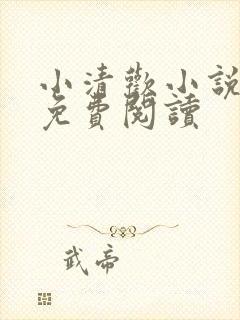 小清歡小說
免費閱讀
武帝